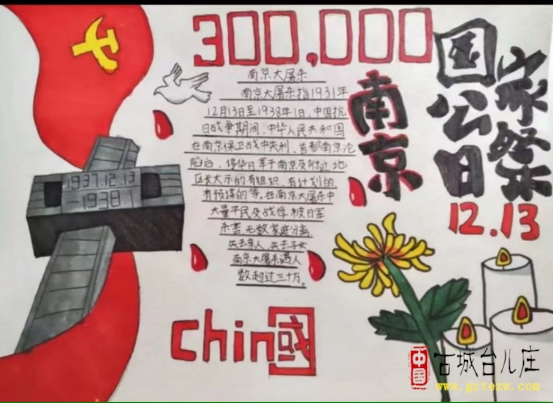 300,000
南京
国家公祭日
12.13
1937.12.13
-1938.1
南京大屠杀
南京大屠杀指1931年
12月13日至1938年1日,中国抗
日战争期间,中华人民共和国
在南京保卫战中失利,首都南京沦
陷后,侵华日军于南京及附近地
区大示的有组织,有计划的
有预谋的等。在南京大屠杀中
大量平民及战俘被日军
杀害,无数家庭分离
失去亲人,失去子女
南京大屠杀遇人
数超过三十万。
chin國
中国
古城台儿庄
www.gctezw.com